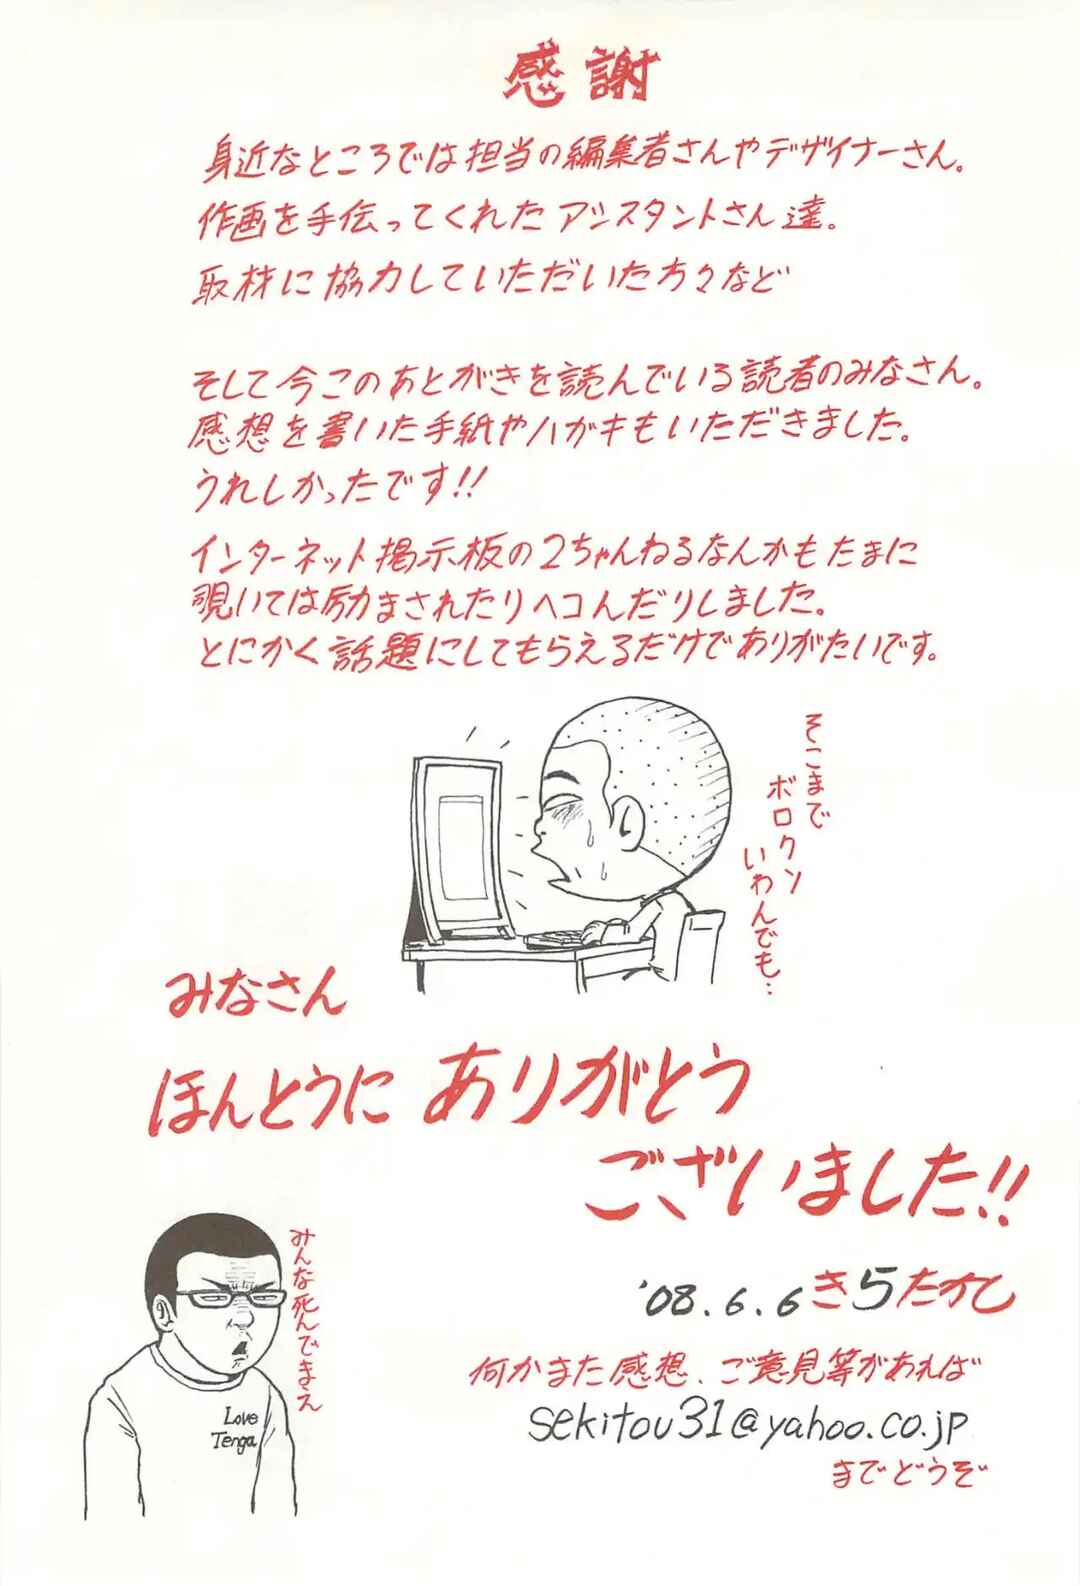 感謝
身近なところでは担当の編集者さんやデザイナーさん。
作画を手伝ってくれたアシスタントさん達。
取材に協力していただいた方々など
そして今このあとがきを読んでいる読者のみなさん。
感想を書いた手紙やハガキもいただきました。
うれしかったです!!
インターネット掲示板の2ちゃんねるなんかもたまに
覗いては励まされたりヘコんだりしました。
とにかく話題にしてもらえるだけでありがたいです。
そこまで
ボロクソ
いわんでも‥
みなさん
ほんとうに ありがとう
ございました!!
みんな死んでまえ
Love
Tenga
'08.6.6 きらたかし
何かまた感想、ご意見等があれば
sekitou31@yahoo.co.jp
までどうぞ